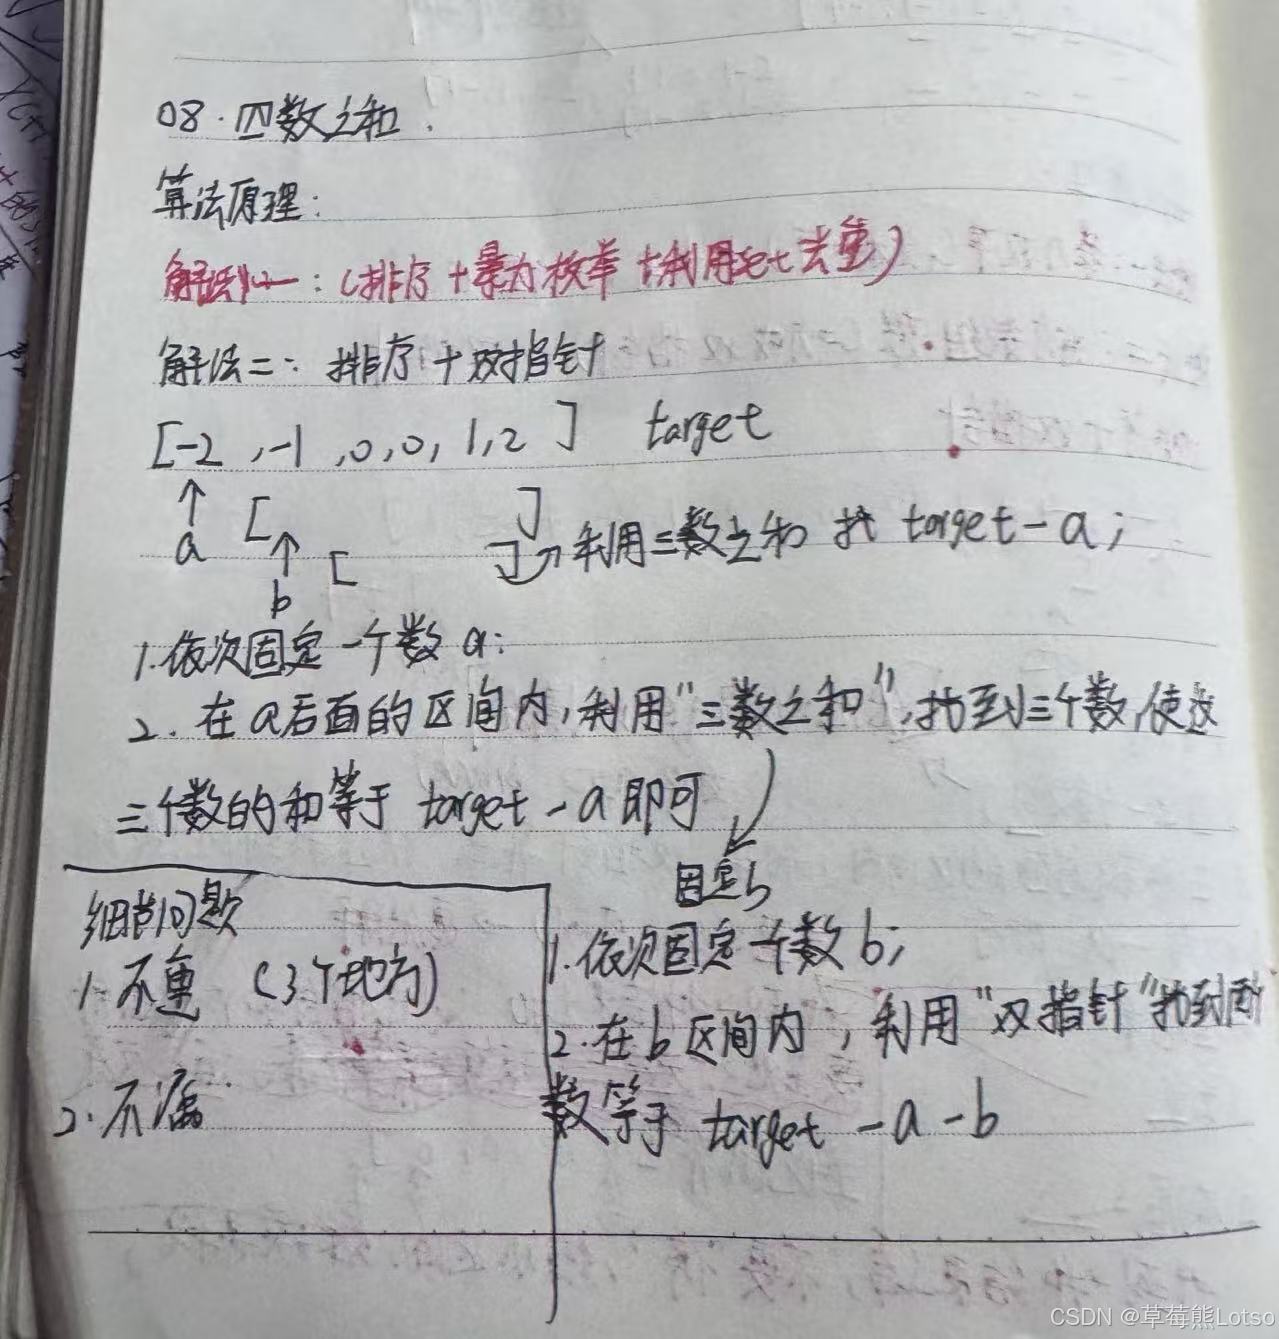 08.四数之和.
算法原理:
解法一:(排序+暴力枚举+利用set去重)
解法二:排序+双指针
[-2,-1,0,0,1,2] target
a [ ] 利用三数之和 找 target-a;
b [ ]
1.依次固定一个数a:
2.在a后面的区间内,利用"三数之和",找到三个数,使这
三个数的和等于 target-a即可
固定b
细节问题
1.不重 (3个地方)
2.不漏
1.依次固定一个数b;
2.在b区间内,利用"双指针"找到两
数等于 target-a-b
CSDN @草莓熊Lotso